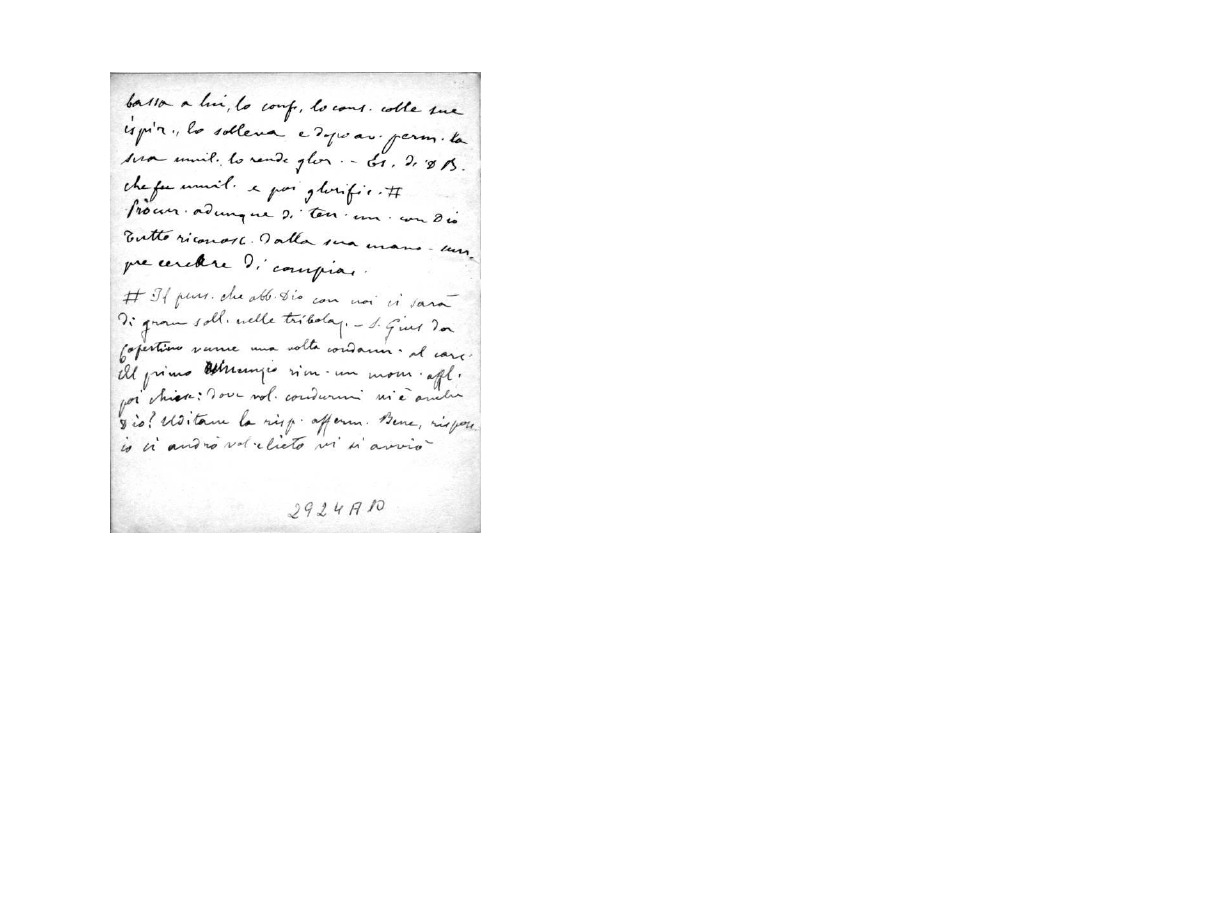 bassa a lui, lo conf., lo cons. colle sue
ispir., lo solleva e dopo av. perm. la
sua umil. lo rende glor. - Es. di D B.
che fu umil. e poi glorific. #
Procur. adunque di ten. un. con Dio
Tutto riconosc. dalla sua mano - sem-
pre cercare di compiac.
# Il pens. che abb. Dio con noi ci sarà
di gran soll. nelle tribolaz. - S. Gius da
Copertino venne una volta condann. al carc.
Al primo annunzio rim. un mom. affl.
poi chiese: dove vol. condurmi vi è anche
Dio? Uditane la risp. afferm. Bene, rispose
io ci andrò vol. e lieto vi si avviò
2924 A 10